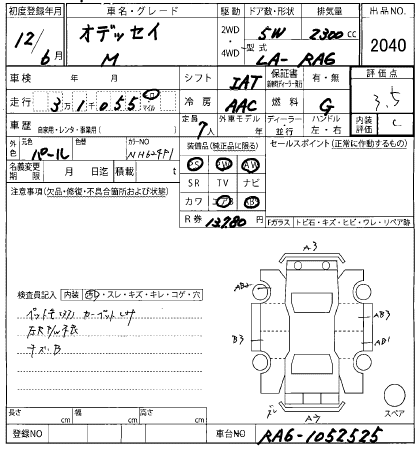 初度登録年月 車名・グレード 駆動 ドア数・形状 排気量 出品NO.
12/6月 オデッセイ M 2WD・4WD 5W 2300cc 2040
型式 LA- RA6
車検 年 月 シフト IAT 保証書 有・無 評価点
走行 3万1千055 キロ マイル 冷房 AAC 燃料 G 3.5
車歴 自家用・レンタ・事業用( ) 定員 7人 外車モデル 年 ディーラー・並行 ハンドル 左・右 内装評価 C
外色 元色 パール 色替 カラーNO NH624P1 装備品(純正品に限る) セールスポイント(正常に作動するもの)
名義変更期限 月 日迄 積載 t PS PW AW
注意事項(欠品・修復・不具合箇所および状態) SR TV ナビ
カワ エアB ABS
R券 13,780円 Fガラス トビ石・キズ・ヒビ・ワレ・リペア跡
A3
検査員記入 内装
スレ・キズ・キレ・コゲ・穴
B3 AB3
AD1
キズ・B
A7 スペア
長さ cm 幅 cm 高さ cm
登録NO 車台NO RA6-1052525